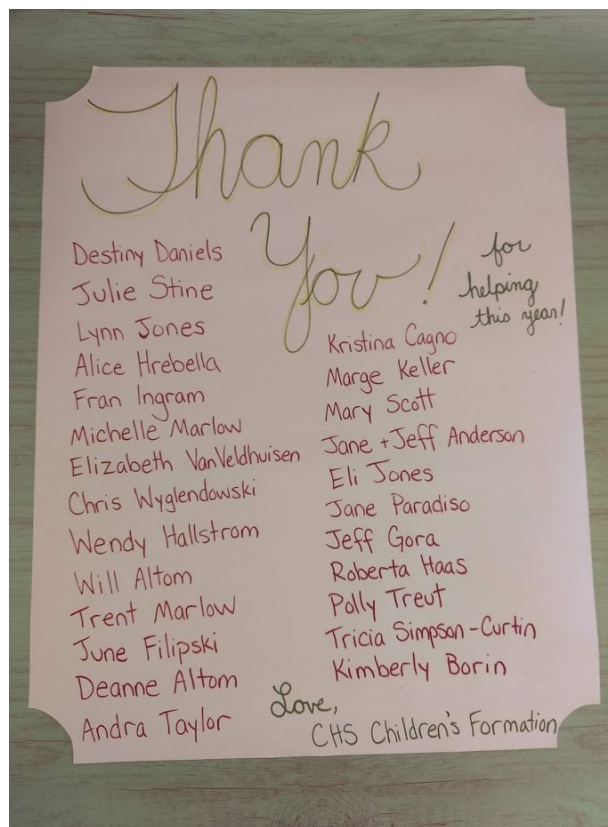 Thank
You!
for
helping
this year!
Destiny Daniels
Julie Stine
Lynn Jones
Alice Hrebella
Fran Ingram
Michelle Marlow
Elizabeth VanVeldhuisen
Chris Wyglendowski
Wendy Hallstrom
Will Altom
Trent Marlow
June Filipski
Deanne Altom
Andra Taylor
Kristina Cagno
Marge Keller
Mary Scott
Jane + Jeff Anderson
Eli Jones
Jane Paradiso
Jeff Gora
Roberta Haas
Polly Treut
Tricia Simpson-Curtin
Kimberly Borin
Love,
CHS Children's Formation